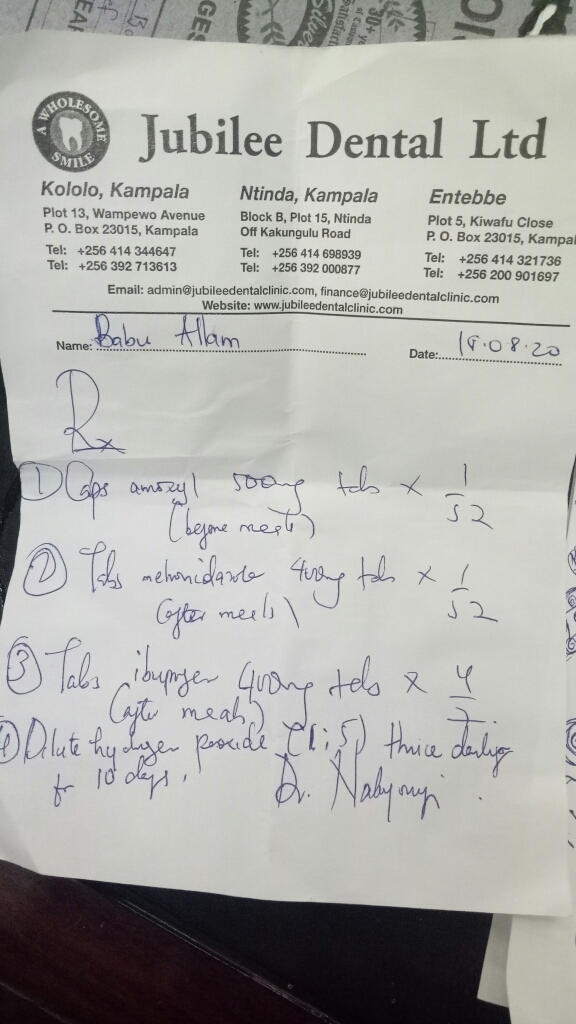 A WHOLESOME SMILE
Jubilee Dental Ltd
Kololo, Kampala
Plot 13, Wampewo Avenue
P. O. Box 23015, Kampala
Tel: +256 414 344647
Tel: +256 392 713613
Ntinda, Kampala
Block B, Plot 15, Ntinda
Off Kakungulu Road
Tel: +256 414 698939
Tel: +256 392 000877
Entebbe
Plot 5, Kiwafu Close
P. O. Box 23015, Kampal
Tel: +256 414 321736
Tel: +256 200 901697
Email: admin@jubileedentalclinic.com, finance@jubileedentalclinic.com
Website: www.jubileedentalclinic.com
Name: Babu Allam
Date: .08.20
Rx
① Caps amoxyl 500mg tds × 1/52
(before meals)
② Tabs metronidazole 400mg tds × 1/52
(after meals)
③ Tabs ibuprofen 400mg tds × 4/7
(after meals)
④ Dilute hydrogen peroxide (1:5) thrice daily
for 10 days.
Dr.